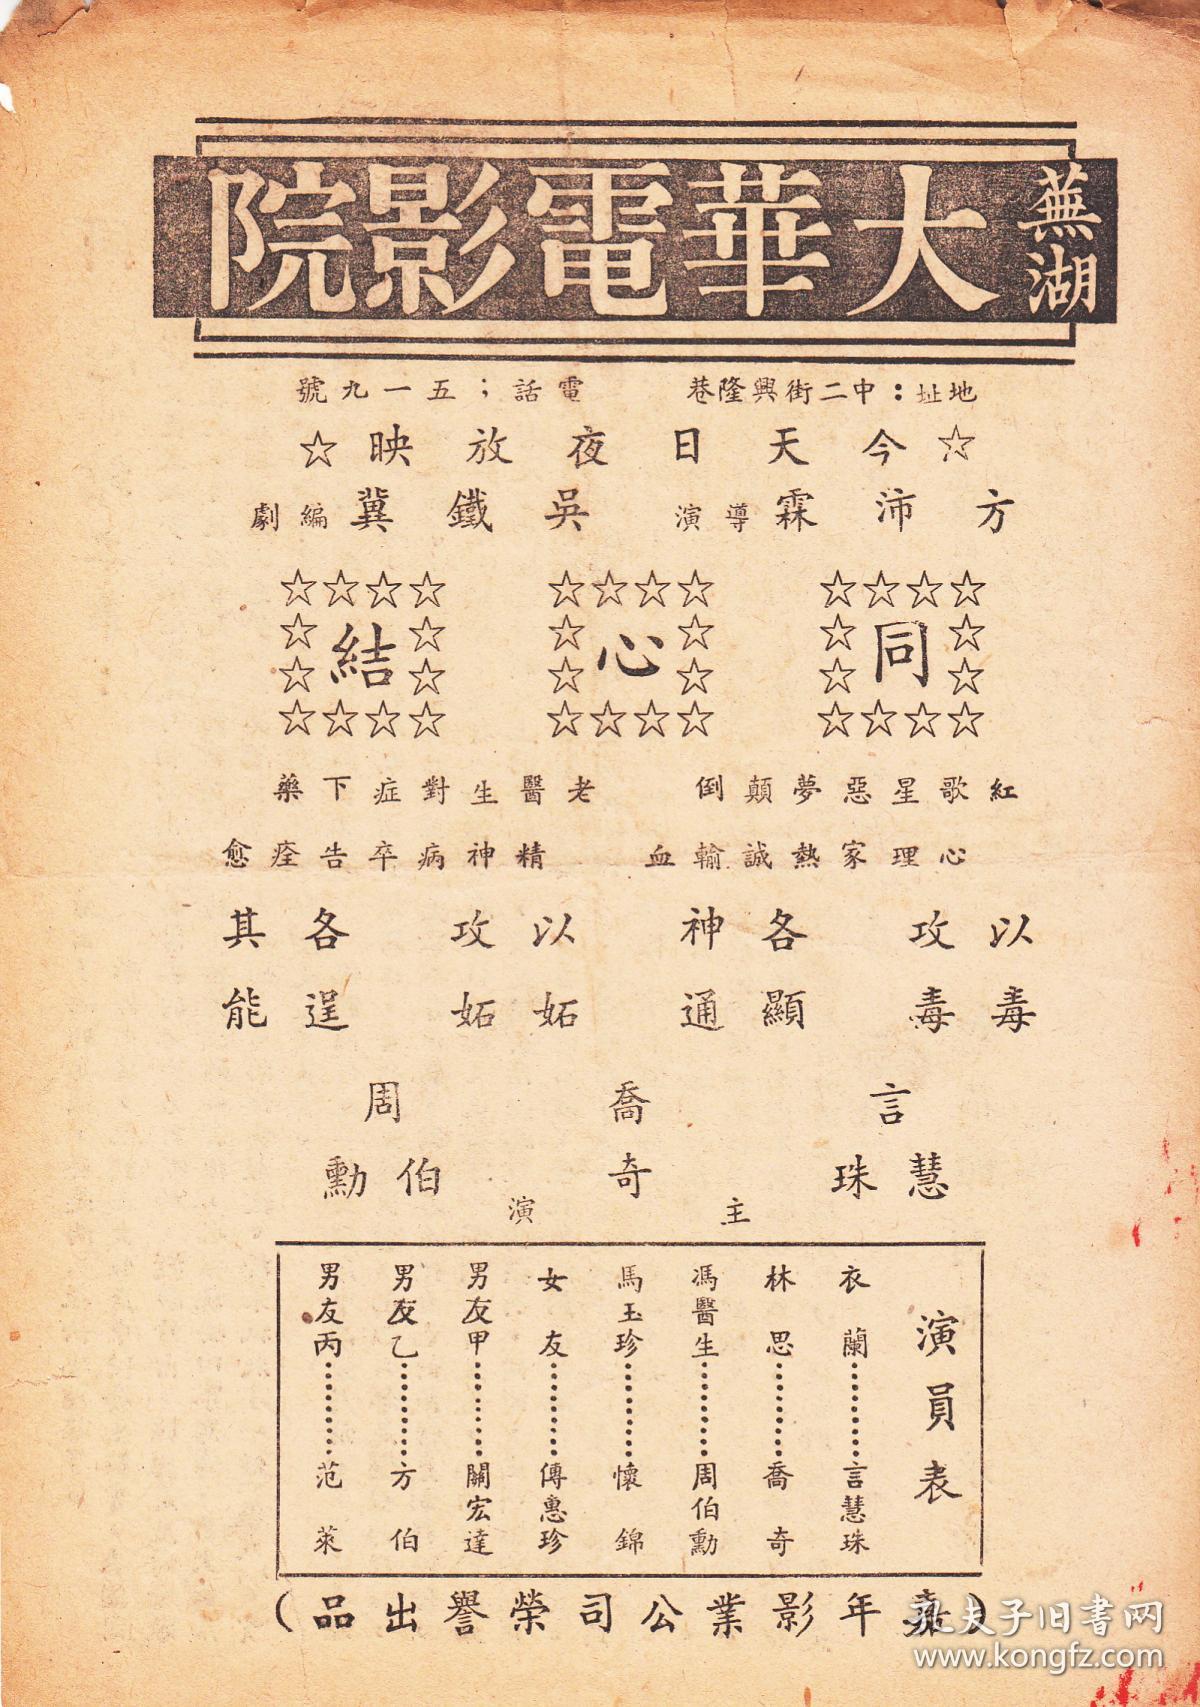 蕪湖
大華電影院
地址：中二街興隆巷　電話；五一九號
☆今天日夜放映☆
方沛霖導演　吳鐵翼編劇
同心結
紅歌星惡夢顛倒　老醫生對症下藥
心理家熱誠輸血　精神病卒告痊愈
以毒攻毒　各顯神通　以妬攻妬　各逞其能
言慧珠　喬奇　周伯勳
主演
演員表
衣蘭…………言慧珠
林思…………喬奇
馮醫生…………周伯勳
馬玉珍…………懷錦
女友…………傅惠珍
男友甲…………關宏達
男友乙…………方伯
男友丙…………范萊
年影業公司榮譽出品)
孔夫子旧书网
www.kongfz.com